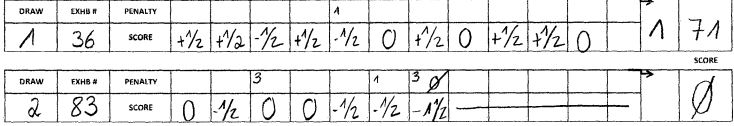 DRAW EXHB # PENALTY 1
1 36 SCORE +1/2 +1/2 -1/2 +1/2 -1/2 0 +1/2 0 +1/2 +1/2 0 1 71
SCORE
DRAW EXHB # PENALTY 3 1 3 Ø
2 83 SCORE 0 -1/2 0 0 -1/2 -1/2 -1 1/2 Ø